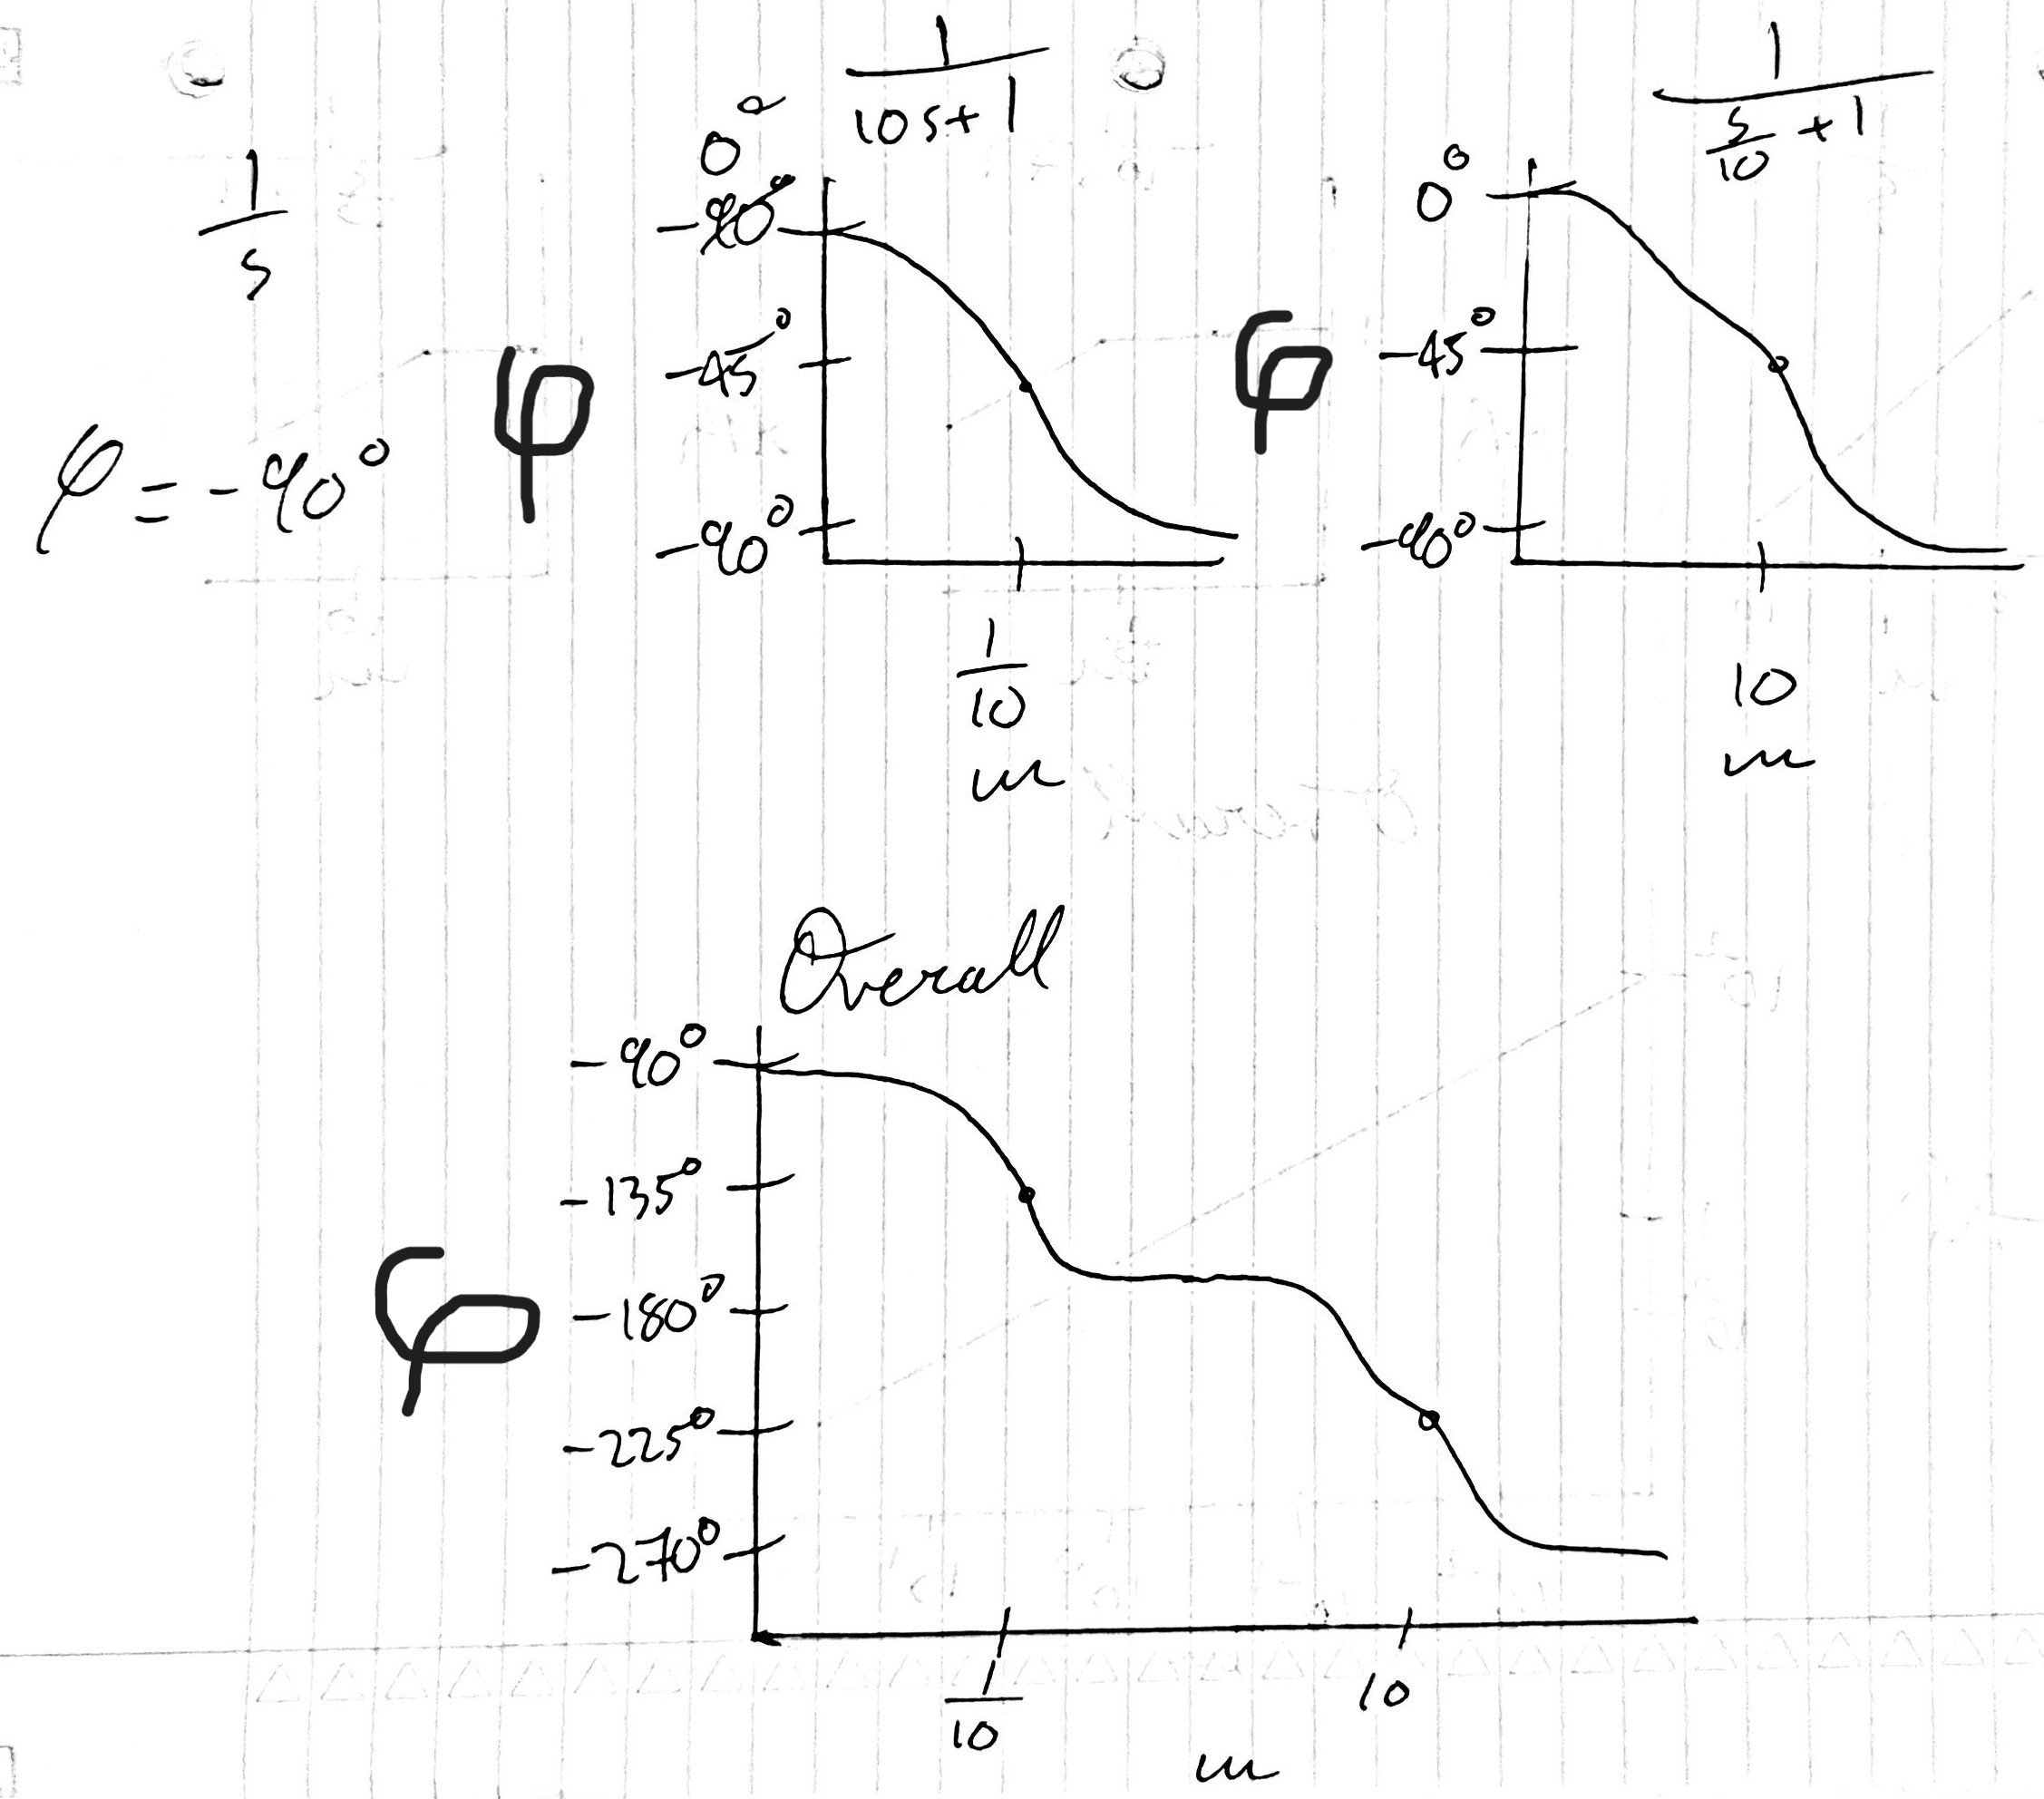 1/s
φ = -90°
1/(10s+1)
0°
-90°
φ
-45°
-90°
1/10
ω
1/(s/10 + 1)
0°
φ
-45°
-90°
10
ω
Overall
-90°
-135°
φ
-180°
-225°
-270°
1/10
10
ω